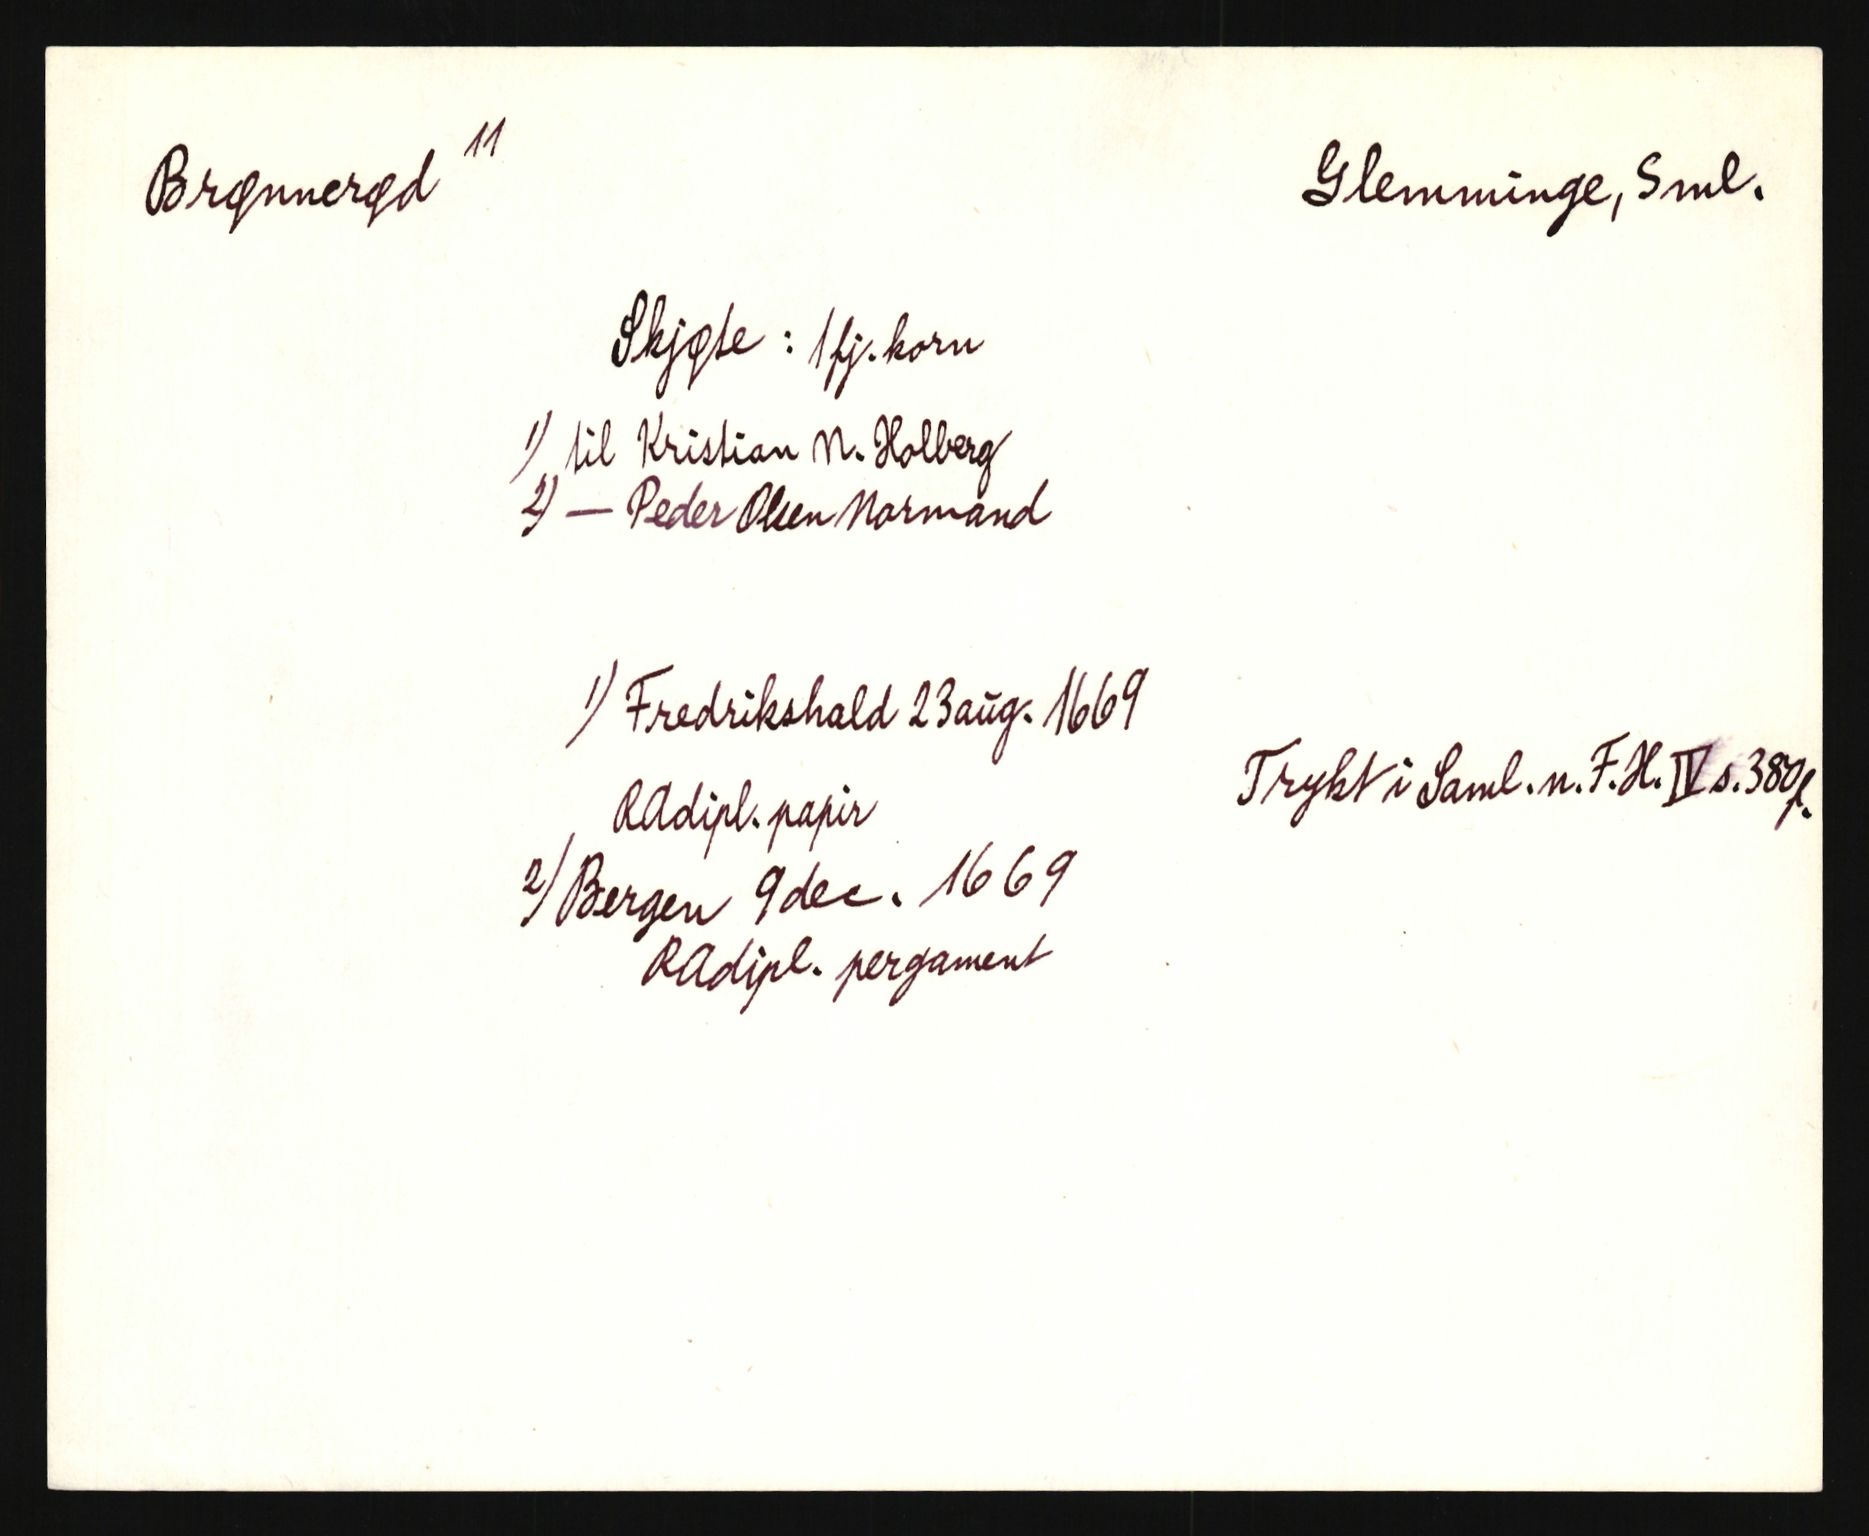 Brønnerød 11
Glemminge, Sml.
Skjøte : 1 fj. korn
1) til Kristian N. Holberg
2) — Peder Olsen Normand
1) Fredrikshald 23 aug. 1669
RAdipl. papir
Trykt i Saml. n. F. H. IV s. 380f.
2) Bergen 9 dec. 1669
RAdipl. pergament